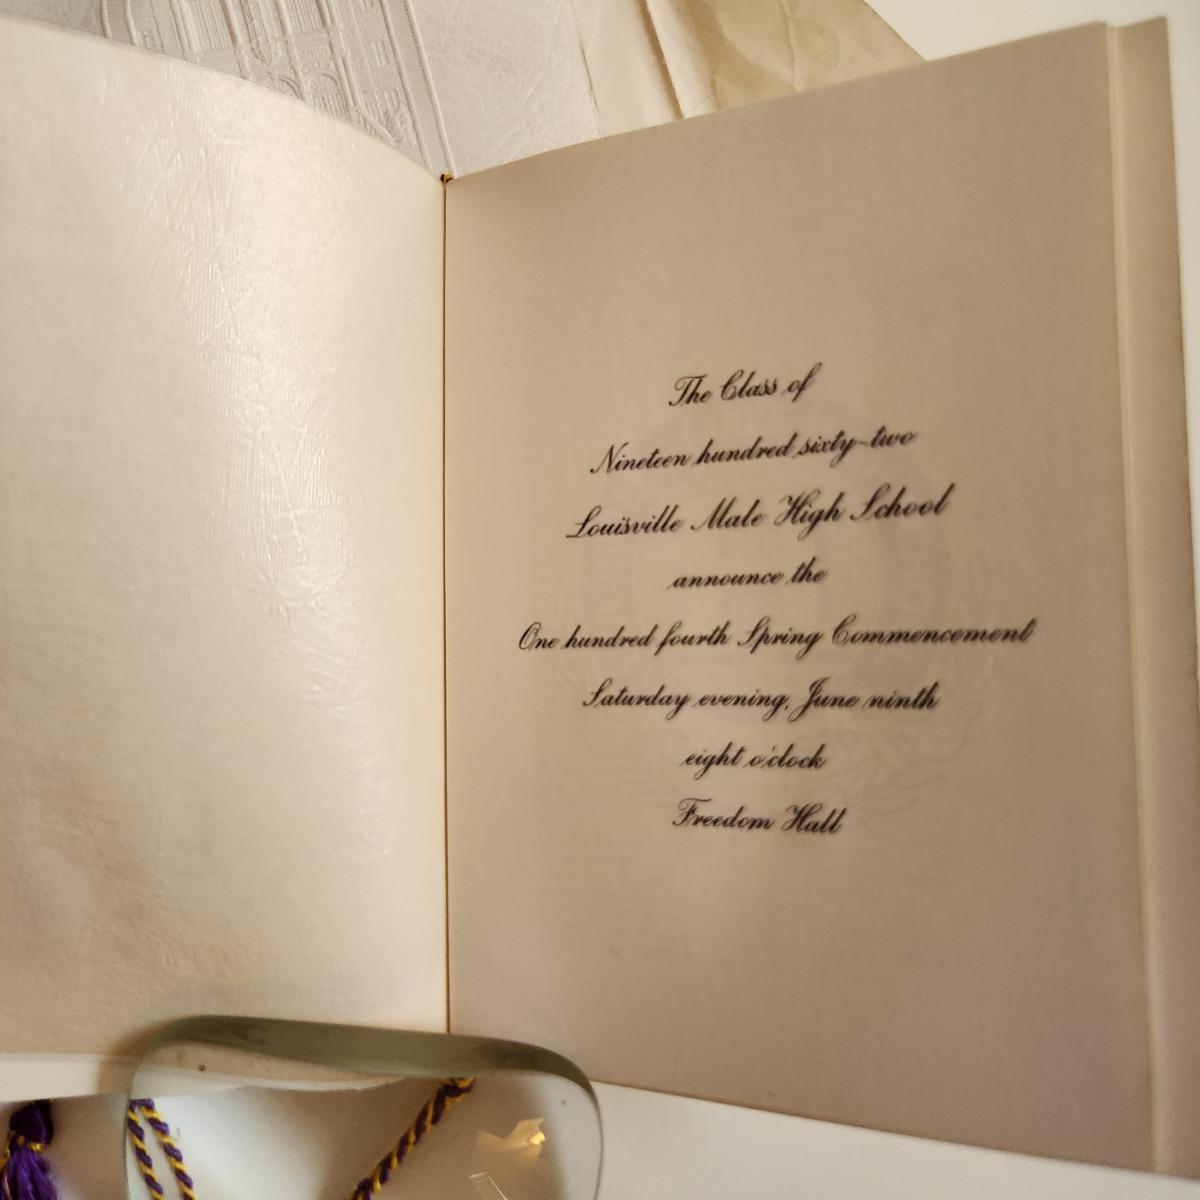 The Class of
Nineteen hundred sixty-two
Louisville Male High School
announce the
One hundred fourth Spring Commencement
Saturday evening, June ninth
eight o'clock
Freedom Hall